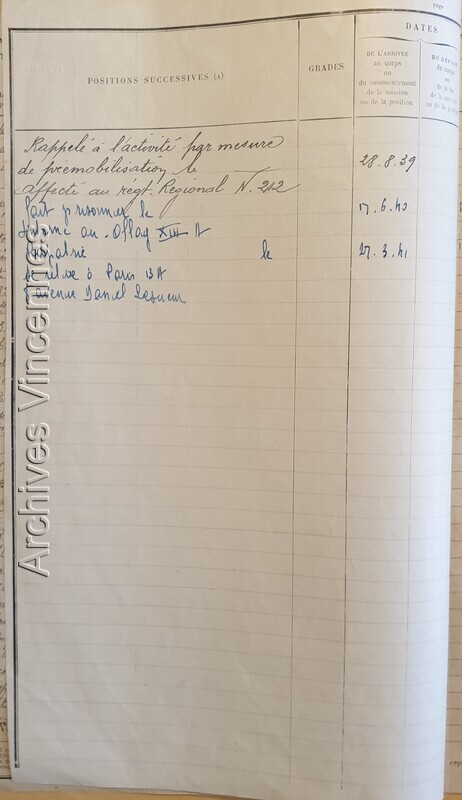 page
POSITIONS SUCCESSIVES (A)
GRADES
DATES
DE L'ARRIVÉE
au corps
ou
du commencement
de la mission
ou de la position
DU DÉPART
du corps
ou
de la fin
de la
ou de la
Rappelé à l'activité par mesure
de prémobilisation le 28.8.39
Affecté au regt. Régional N. 212
fait prisonnier le 17.6.40
interné au Oflag XIII A
Rapatrié le 27.3.41
se retire à Paris
avenue Daniel Lesueur
Archives Vincennes